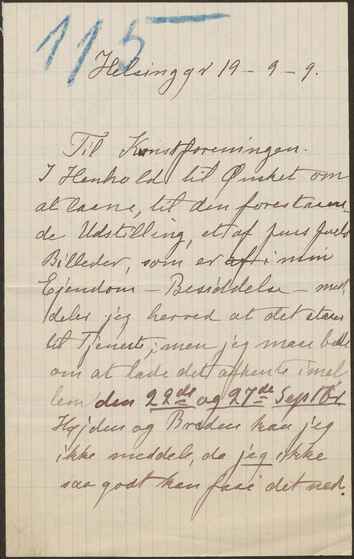 115
Helsingør 19 - 9 - 9.
Til Kunstforeningen.
I Henhold til Ønsket om
at laane, til den forestaaen-
de Udstilling, et af
Billeder, som er i min
Ejendom - Besiddelse - med-
deler jeg herved at det staar
til Tjeneste; men jeg maa bede
om at lade det afhente imel-
lem den 22de og 27de Septbr
Højden og Breden kan jeg
ikke meddele, da jeg ikke
saa godt kan faae det ned.